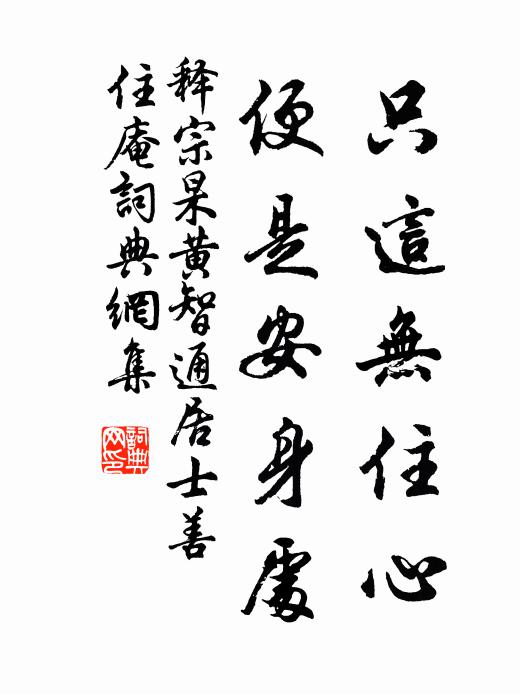 只這無住心
便是安身處
释宗杲黄智通居士善
住庵詞典網集
詞典
网印